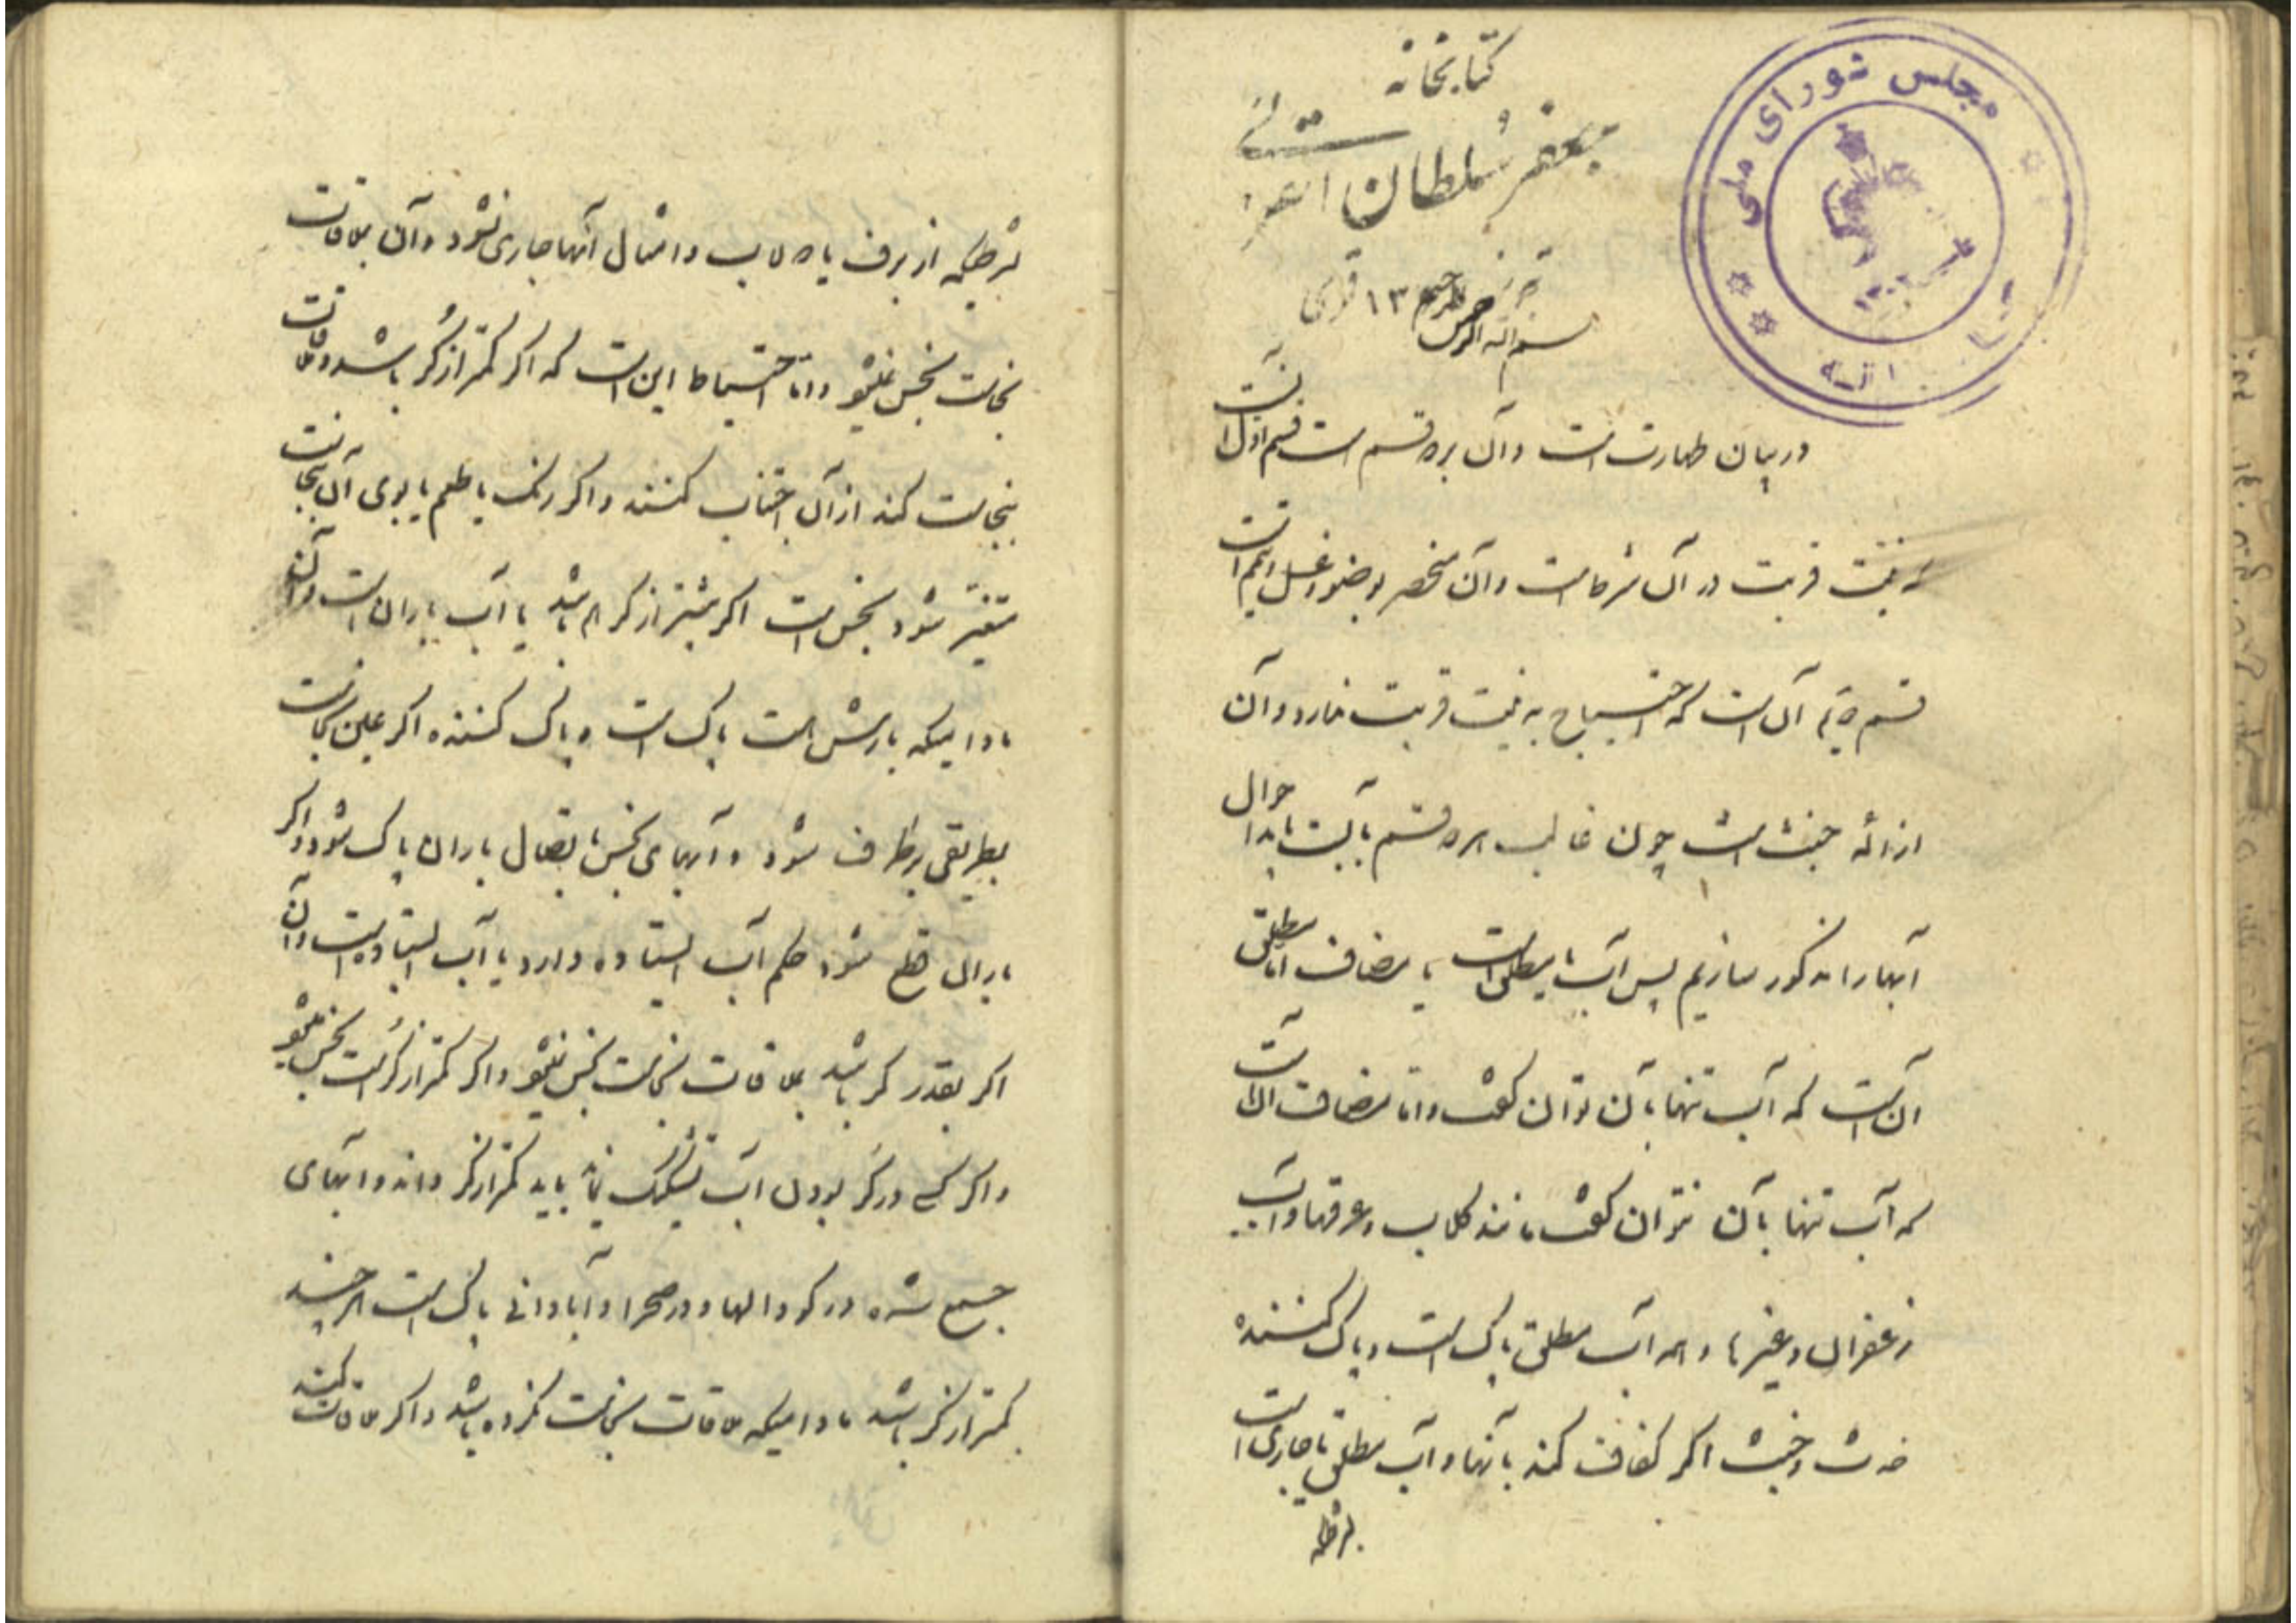 کتابخانه
جعفر سلطان القرائی
تبریز ۱۳ قمری
مجلس شورای ملی
۱۳۰۲
بسم الله الرحمن الرحیم
در بیان طهارت است و آن بر دو قسم است قسم اول آنست
که نیت قربت در آن شرط است و آن منحصر بوضو و غسل و تیمم است
قسم دویم آن است که احتیاج به نیت قربت ندارد و آن
ازاله خبث است چون غالب هر دو قسم بآبست باید احوال
آبها را مذکور سازیم پس آب یا مطلق است یا مضاف اما مطلق
آن است که آب تنها بآن توان گفت و اما مضاف آن است
که آب تنها بآن نتوان گفت مانند گلاب و عرقها و آب
زعفران و غیرها و هر آب مطلق پاک است و پاک کننده
حدث و خبث اگر کفافت کند بآنها و آب مطلق یا جاری است
بشرطیکه
بشرطیکه از برف یا دولاب و امثال آنها جاری نشود و آن بملاقات
نجاست نجس نمیشود و اما احتیاط این است که اگر کمتر از کُر باشد و ملاقات
بنجاست کند از آن اجتناب کنند و اگر رنگ یا طعم یا بوی آن بنجاست
متغیر شود نجس است اگر بیشتر از کر هم باشد یا آب باران است و آن
مادامیکه بارش است پاک است و پاک کننده اگر عین نجاست
بطریقی برطرف شود و آبهای نجس باتصال باران پاک شود و اگر
باران قطع شود حکم آب ایستاده دارد یا آب ایستاده است و آن
اگر بقدر کر باشد بملاقات نجاست نجس نمیشود و اگر کمتر از کُر است نجس میشود
و اگر کسی در کُر بودن آب تشکیک نماید باید کمتر از کر داند و آبهای
جمع شده در کودالها و در صحرا و آبادانی پاک است هر چند
کمتر از کر باشد مادامیکه ملاقات نجاست نکرده باشد و اگر ملاقات کند